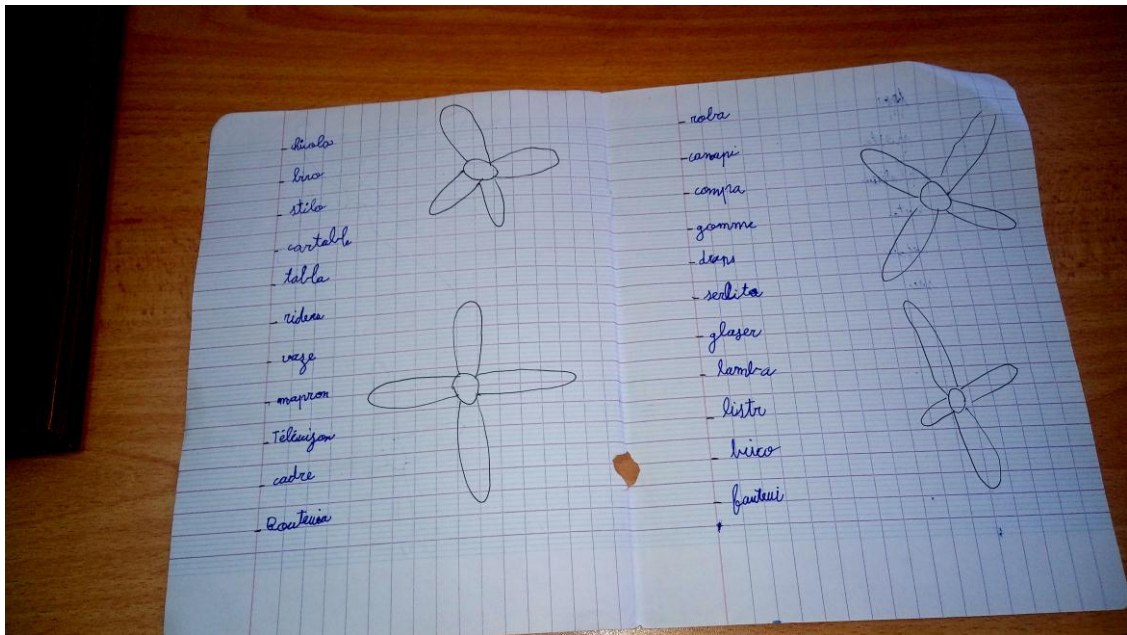 - biro
- stilo
- cartable
- tabla
- ridena
- vaze
- mapron
- Télévizon
- cadre
- roba
- canapi
- compra
- gomme
- draps
- serbita
- glaser
- lamba
- listr
- fauteui